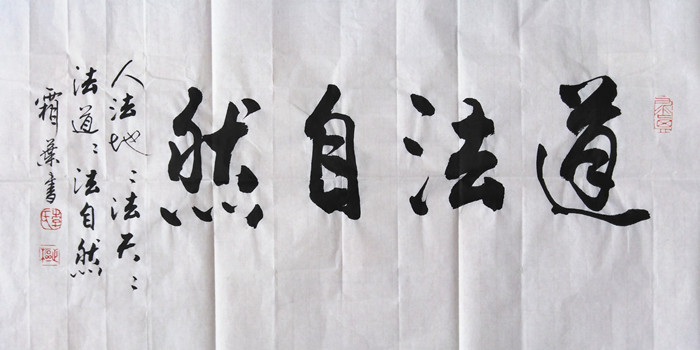 道法自然
人法地〻法天〻
法道〻法自然
霜葉書